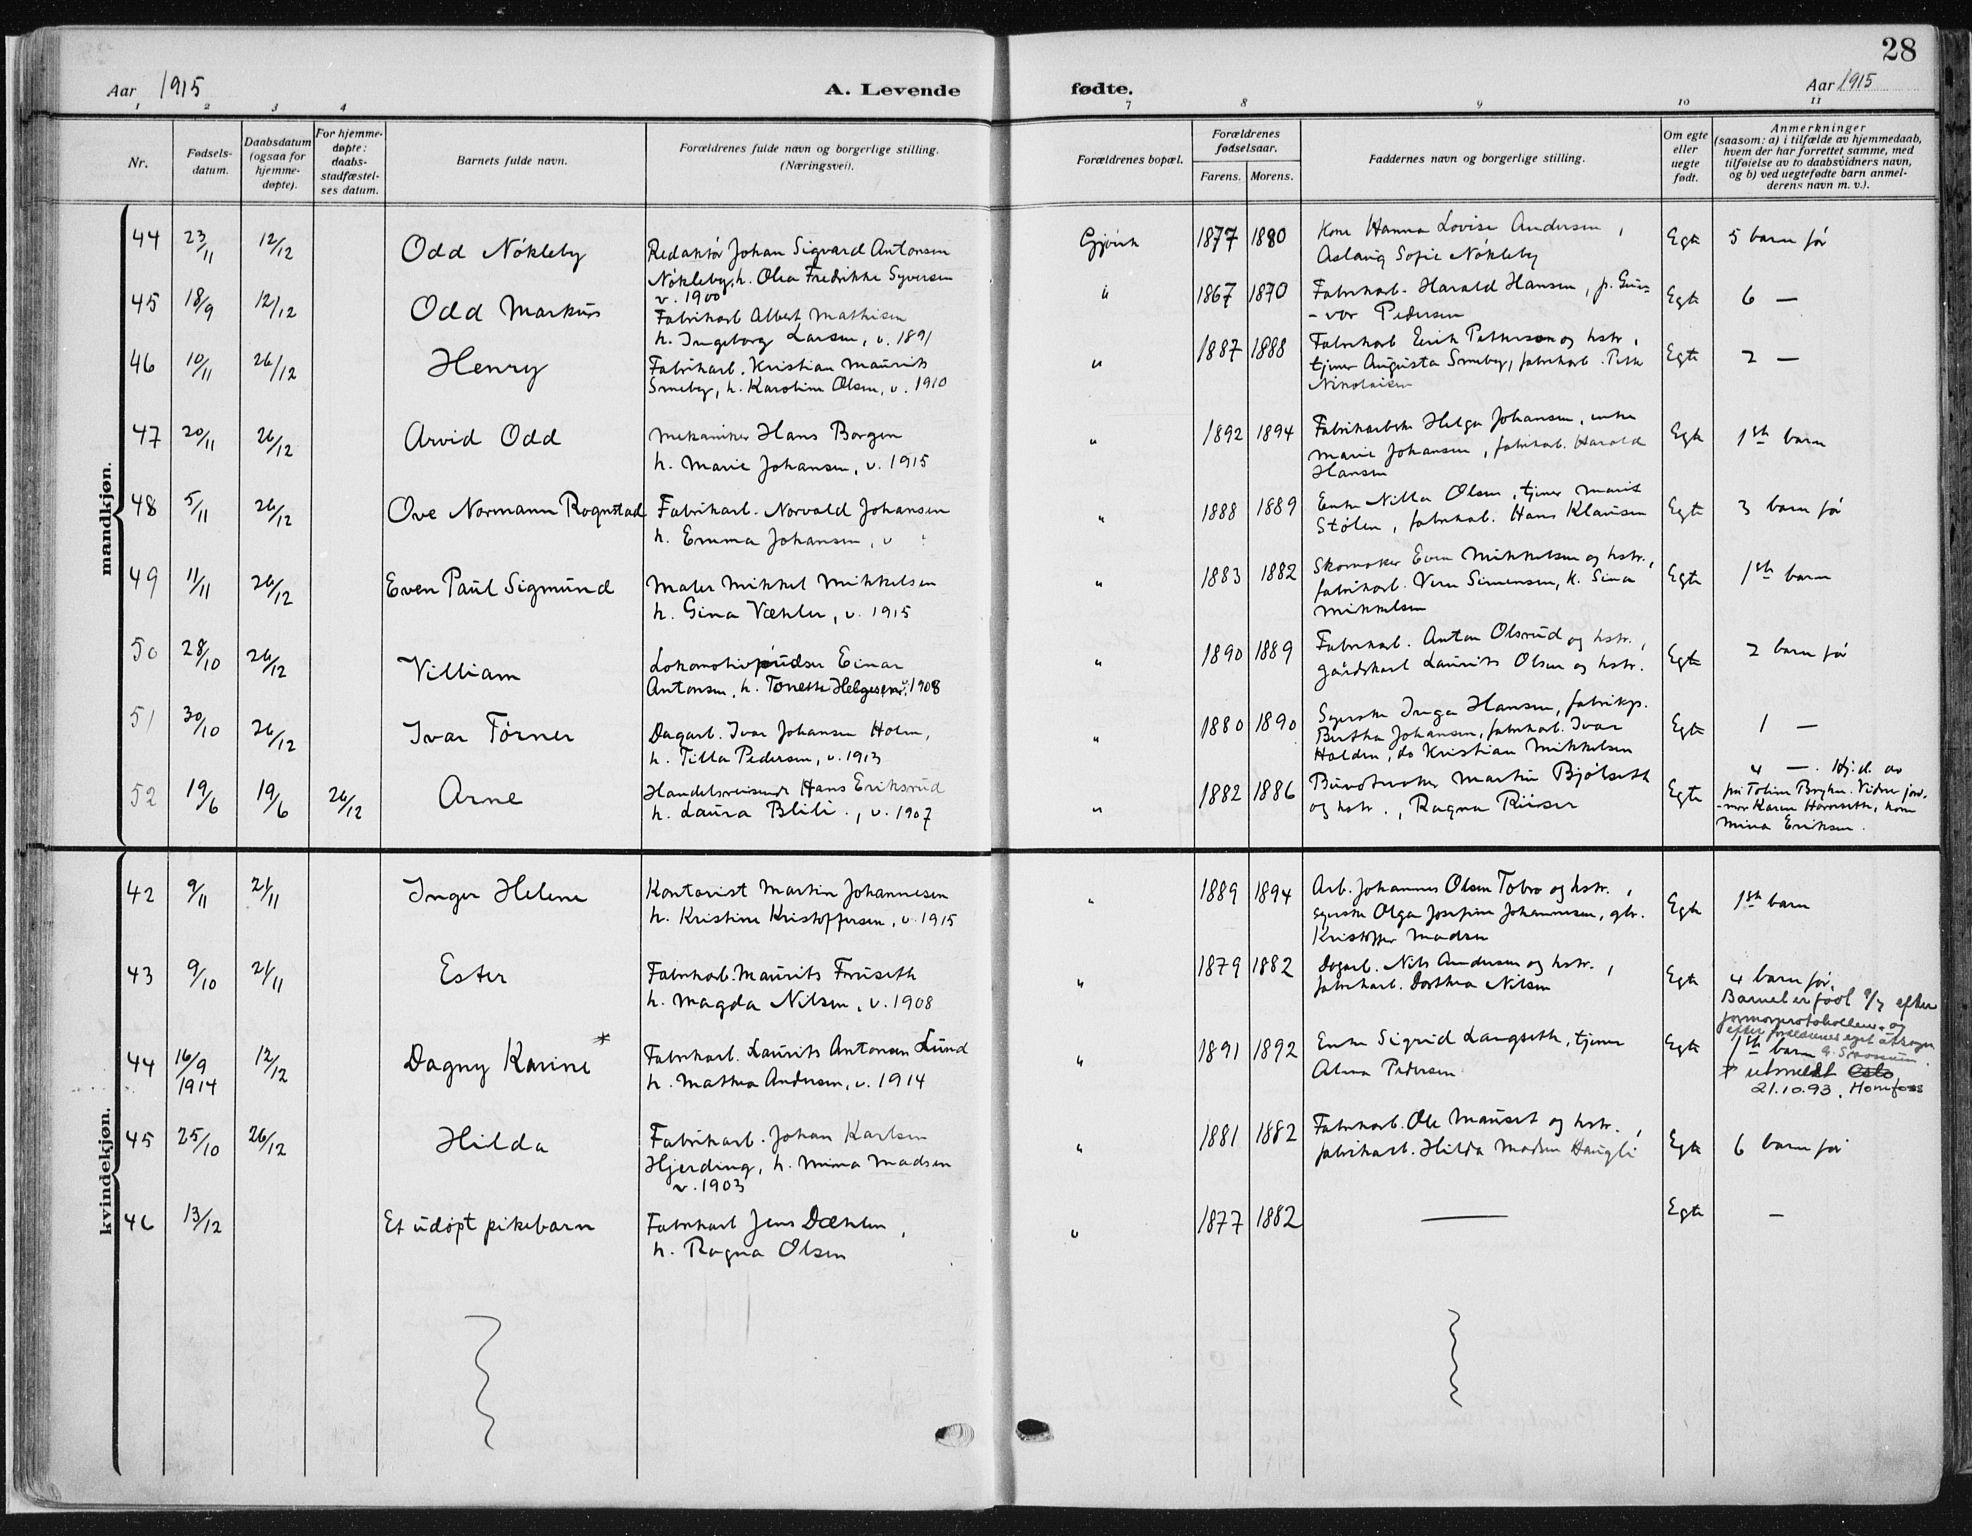 28
Aar 1915
A. Levende fødte.
Aar 1915
1 2 3 4 7 8 9 10 11
Nr.
Fødsels-
datum.
Daabsdatum
(ogsaa for
hjemme-
døpte).
For hjemme-
døpte:
daabs-
stadfæstel-
ses datum.
Barnets fulde navn.
Forældrenes fulde navn og borgerlige stilling.
(Næringsvei).
Forældrenes bopæl.
Forældrenes
fødselsaar.
Farens. Morens.
Faddernes navn og borgerlige stilling.
Om egte
eller
uegte
født.
Anmerkninger
(saasom: a) i tilfælde av hjemmedaab,
hvem der har forrettet samme, med
tilføielse av to daabsvidners navn,
og b) ved uegtefødte barn anmel-
derens navn m. v.).
mandkjøn.
44 23/11 12/12 Odd Nökleby
Redaktør Johan Sigvard Antonsen
Nökleby, h. Olea Fredrikke Syversen
v. 1900
Gjövik 1877 1880
Kone Hanna Lovise Andersen,
Aslaug Sofie Nökleby
Egte 5 barn før
45 18/9 12/12 Odd Markus
Fabrikarb Albert Mathisen
h. Ingeborg Larsen, v. 1891
" 1867 1870
Fabrikarb. Harald Hansen, p. Gun-
-vor Pedersen
Egte 6 —
46 10/11 26/12 Henry
Fabrikarb. Kristian Maurits
Smeby, h. Karoline Olsen, v. 1910
" 1887 1888
Fabrikarb Erik Pettersen og hstr,
tjener Augusta Smeby, fabrikarb.
Nikolaisen
Egte 2 —
47 20/11 26/12 Arvid Odd
Mekaniker Hans Borgen
h. Marie Johansen, v. 1915
" 1892 1894
Fabrikarbske Helga Johansen, enke
Marie Johansen, fabrikarb. Harald
Hansen
Egte 1ste barn
48 5/11 26/12 Ove Normann Rognstad
Fabrikarb. Norvald Johansen
h. Emma Johansen, v
" 1888 1889
Enke Nilla Olsen, tjener Marit
Stølen, fabrikarb. Hans Klausen
Egte 3 barn før
49 11/11 26/12 Even Paul Sigmund
Maler Mikkel Mikkelsen
h. Gina Væhler, v. 1915
" 1883 1882
Skomaker Even Mikkelsen og hstr.,
fabrikarb. Simensen, k. Sina
Mikkelsen
Egte 1ste barn
50 28/10 26/12 Villiam
Lokomotivpudser Einar
Antonsen, h. Tonette Helgesen v. 1908
" 1890 1889
Fabrikarb. Anton Olsrud og hstr.,
gårdskarl Laurits Olsen og hstr.
Egte 2 barn før
51 30/10 26/12 Ivar Förner
Dagarb. Ivar Johansen Holm,
h. Tilla Pedersen, v. 1913
" 1880 1890
Syerske Inga Hansen, fabrikp.
Bertha Johansen, fabrikarb. Ivar
Holden, do Kristian Mikkelsen
Egte 1 —
52 19/6 19/6 26/12 Arne
Handelsreisende Hans Eriksrud
h. Laura Blili., v. 1907
" 1882 1886
Buntmaker Martin Bjölseth
og hstr., Ragna Riiser
Egte
4 —. Hj.d. av
Vidner jord-
-mor Karen
Mina Eriksen.
kvindekjøn.
42 9/11 21/11 Inger Helene
Kontorist Martin Johannesen
h. Kristine Kristoffersen, v. 1915
" 1889 1894
Arb. Johannes Olsen Tobro og hstr.,
syerske Olga Josefine Johannesen, gbr.
Kristoffer Madsen
Egte 1ste barn
43 9/10 21/11 Ester
Fabrikarb. Maurits Fruseth
h. Magda Nilsen, v. 1908
" 1879 1882
Dagarb. Nils Andersen og hstr.,
fabrikarb. Dorthea Nilsen
Egte 4 barn før,
Barnet er født 9/7 efter
jormorprotokollen og
efter foreldrenes eget utsagn
44 16/9 1914 12/12 Dagny Karine *
Fabrikarb. Laurits Antonsen Lund
h. Mathea Andersen, v. 1914
" 1891 1892
Enke Sigrid Langseth, tjener
Alma Pedersen
Egte 1ste barn
* utmeldt Oslo
21.10.93, Hønefoss
45 25/10 26/12 Hilda
Fabrikarb. Johan Karlsen
Hjerding, h. Mina Madsen
v. 1903
" 1881 1882
Fabrikarb. Ole Mauset og hstr.,
fabrikarb. Hilda Madsen Haugli
Egte 6 barn før
46 13/12 Et udøpt pikebarn
Fabrikarb Jens Dæhlen,
h. Ragna Olsen
" 1877 1882 — Egte —